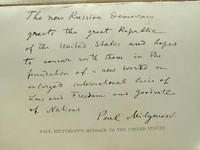 The new Russian Democracy
greets the great Republic
of the United States and hopes
to concur with them in the
foundation of a new world on
enlarged international basis of
Law and Freedom and goodwill
of Nations
Paul Milyukov
PAUL MILYUKOV'S MESSAGE TO THE UNITED STATES